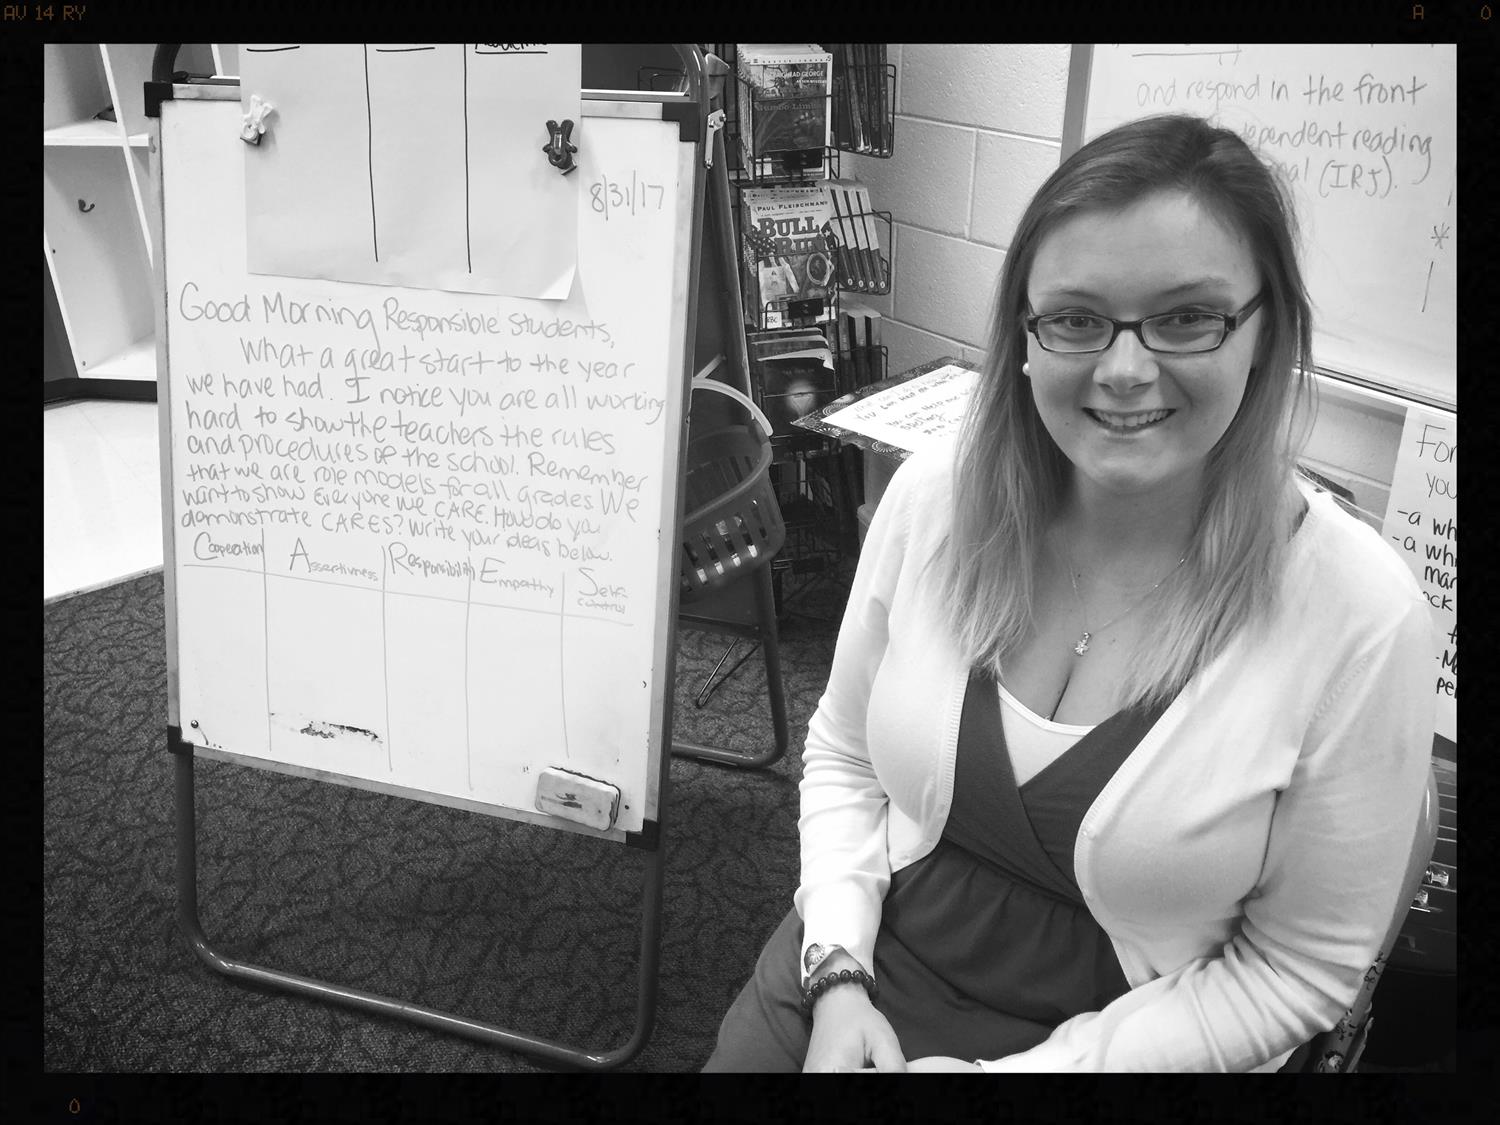 AV 14 RY
A 0
8/31/17
Good Morning Responsible Students,
What a great start to the year
we have had. I notice you are all working
hard to show the teachers the rules
and procedures of the school. Remember
that we are role models for all grades. We
want to show everyone we CARE. How do you
demonstrate CARES? Write your ideas below.
Cooperation Assertiveness Responsibility Empathy Self-
control
GEORGE
PAUL FLEISCHMAN
BULL
RUN
and respond in the front
dependent reading
nal (IRJ).
*
For
you
-a wh
-a whi
mar
ock
pe
0